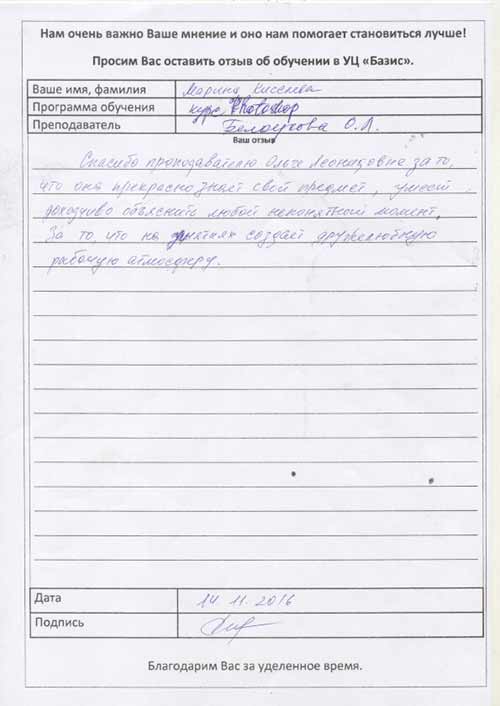 Нам очень важно Ваше мнение и оно нам помогает становиться лучше!
Просим Вас оставить отзыв об обучении в УЦ «Базис».
Ваше имя, фамилия Марина Киселева
Программа обучения курс Photoshop
Преподаватель Белоусова О.Л.
Ваш отзыв
Спасибо преподавателю Ольге Леонидовне за то,
что она прекрасно знает свой предмет, умеет
доходчиво объяснить любой непонятный момент,
За то, что на занятиях создает дружелюбную
рабочую атмосферу.
Дата 14.11.2016
Подпись
Благодарим Вас за уделенное время.